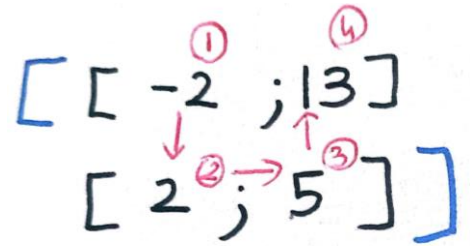 ① ④
[ [ -2 ; 13 ]
↓ ↑
[ 2 ② → ; 5 ③ ] ]